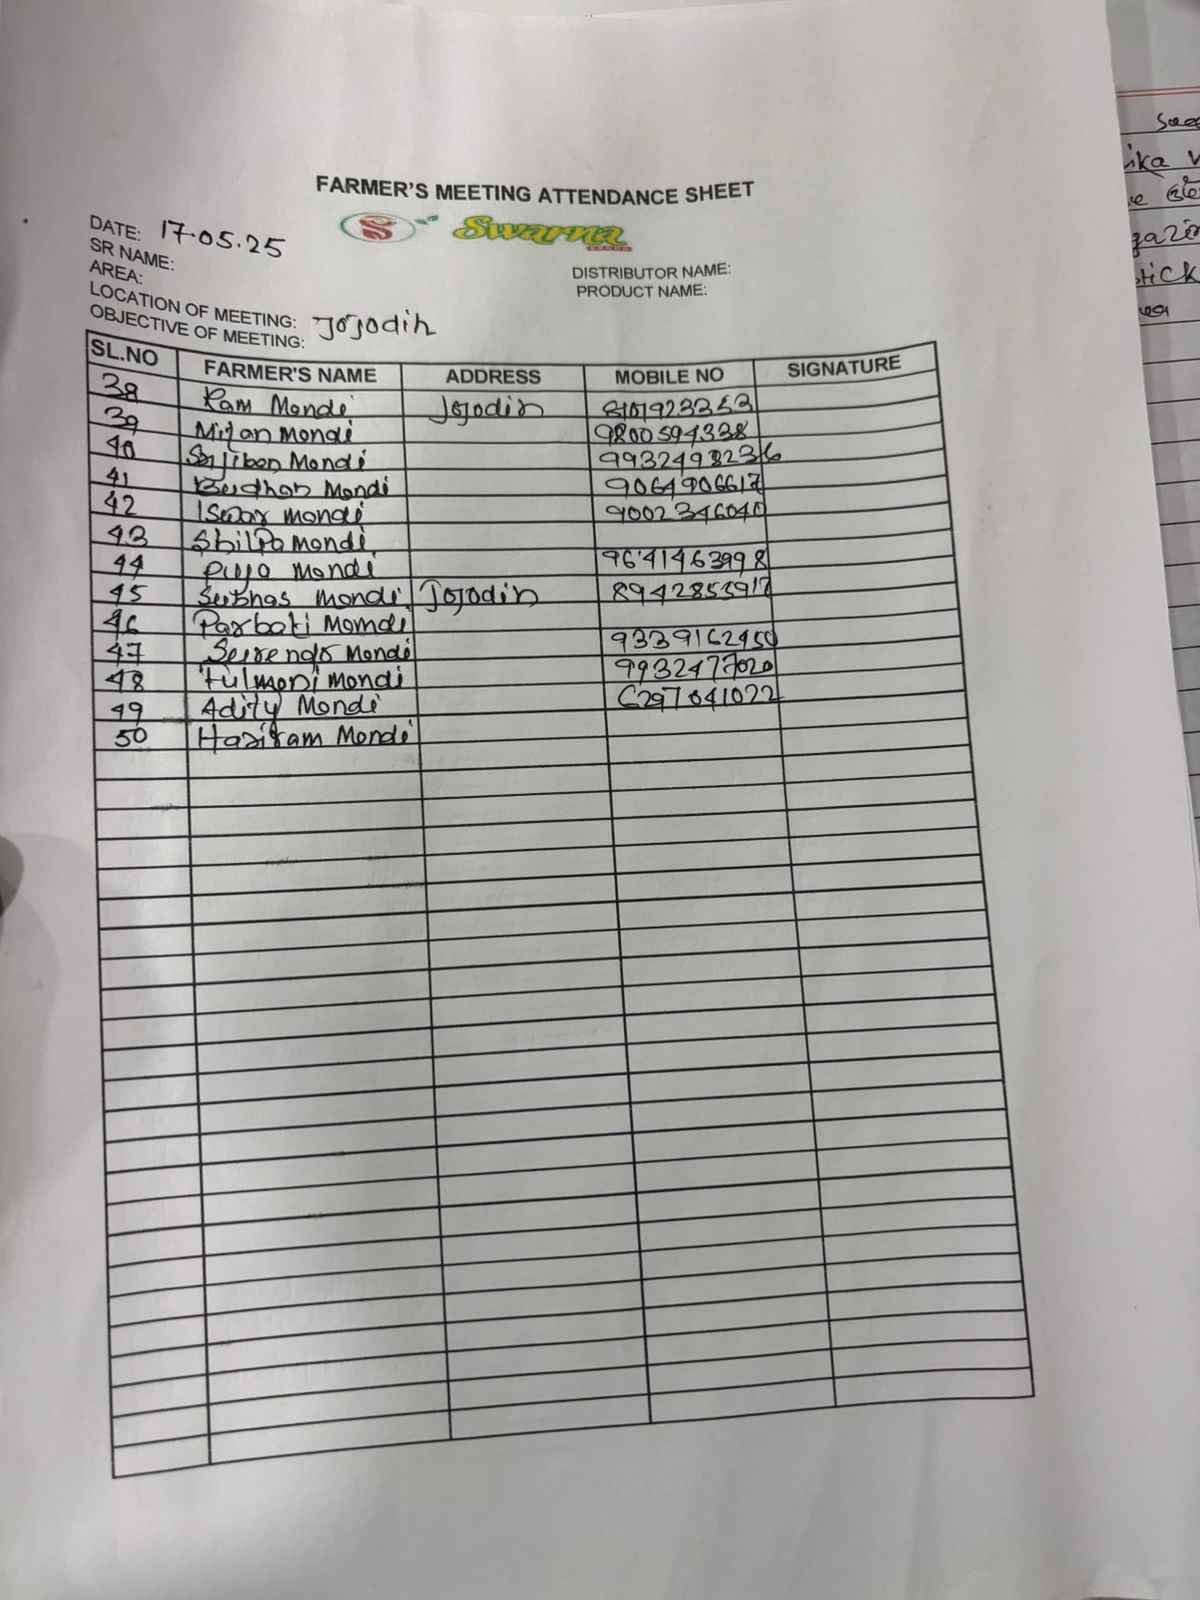 FARMER'S MEETING ATTENDANCE SHEET
Swarna
DATE: 17.05.25
SR NAME:
AREA:
DISTRIBUTOR NAME:
PRODUCT NAME:
LOCATION OF MEETING: Jojodih
OBJECTIVE OF MEETING:
SL.NO FARMER'S NAME ADDRESS MOBILE NO SIGNATURE
38 Ram Mondi Jojodih 8101923353
39 Mitan Mondi 9800594338
40 Sojibon Mondi 9932498236
41 Budhan Mondi 9064906617
42 Iswar mondi 9002346040
43 Shilpa mondi
44 Puja Mondi 9641463998
45 Subhas mondi Jojodih 8942855917
46 Parboti Momdi
47 Surendo Mondi 9339162450
48 Fulmoni mondi 9932477020
49 Adity Mondi 6297041022
50 Hariram Mondi